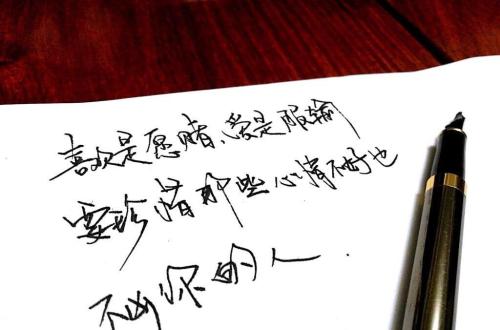 喜欢是愿赌、爱是服输
要珍惜那些心情不好也
不凶你的人.